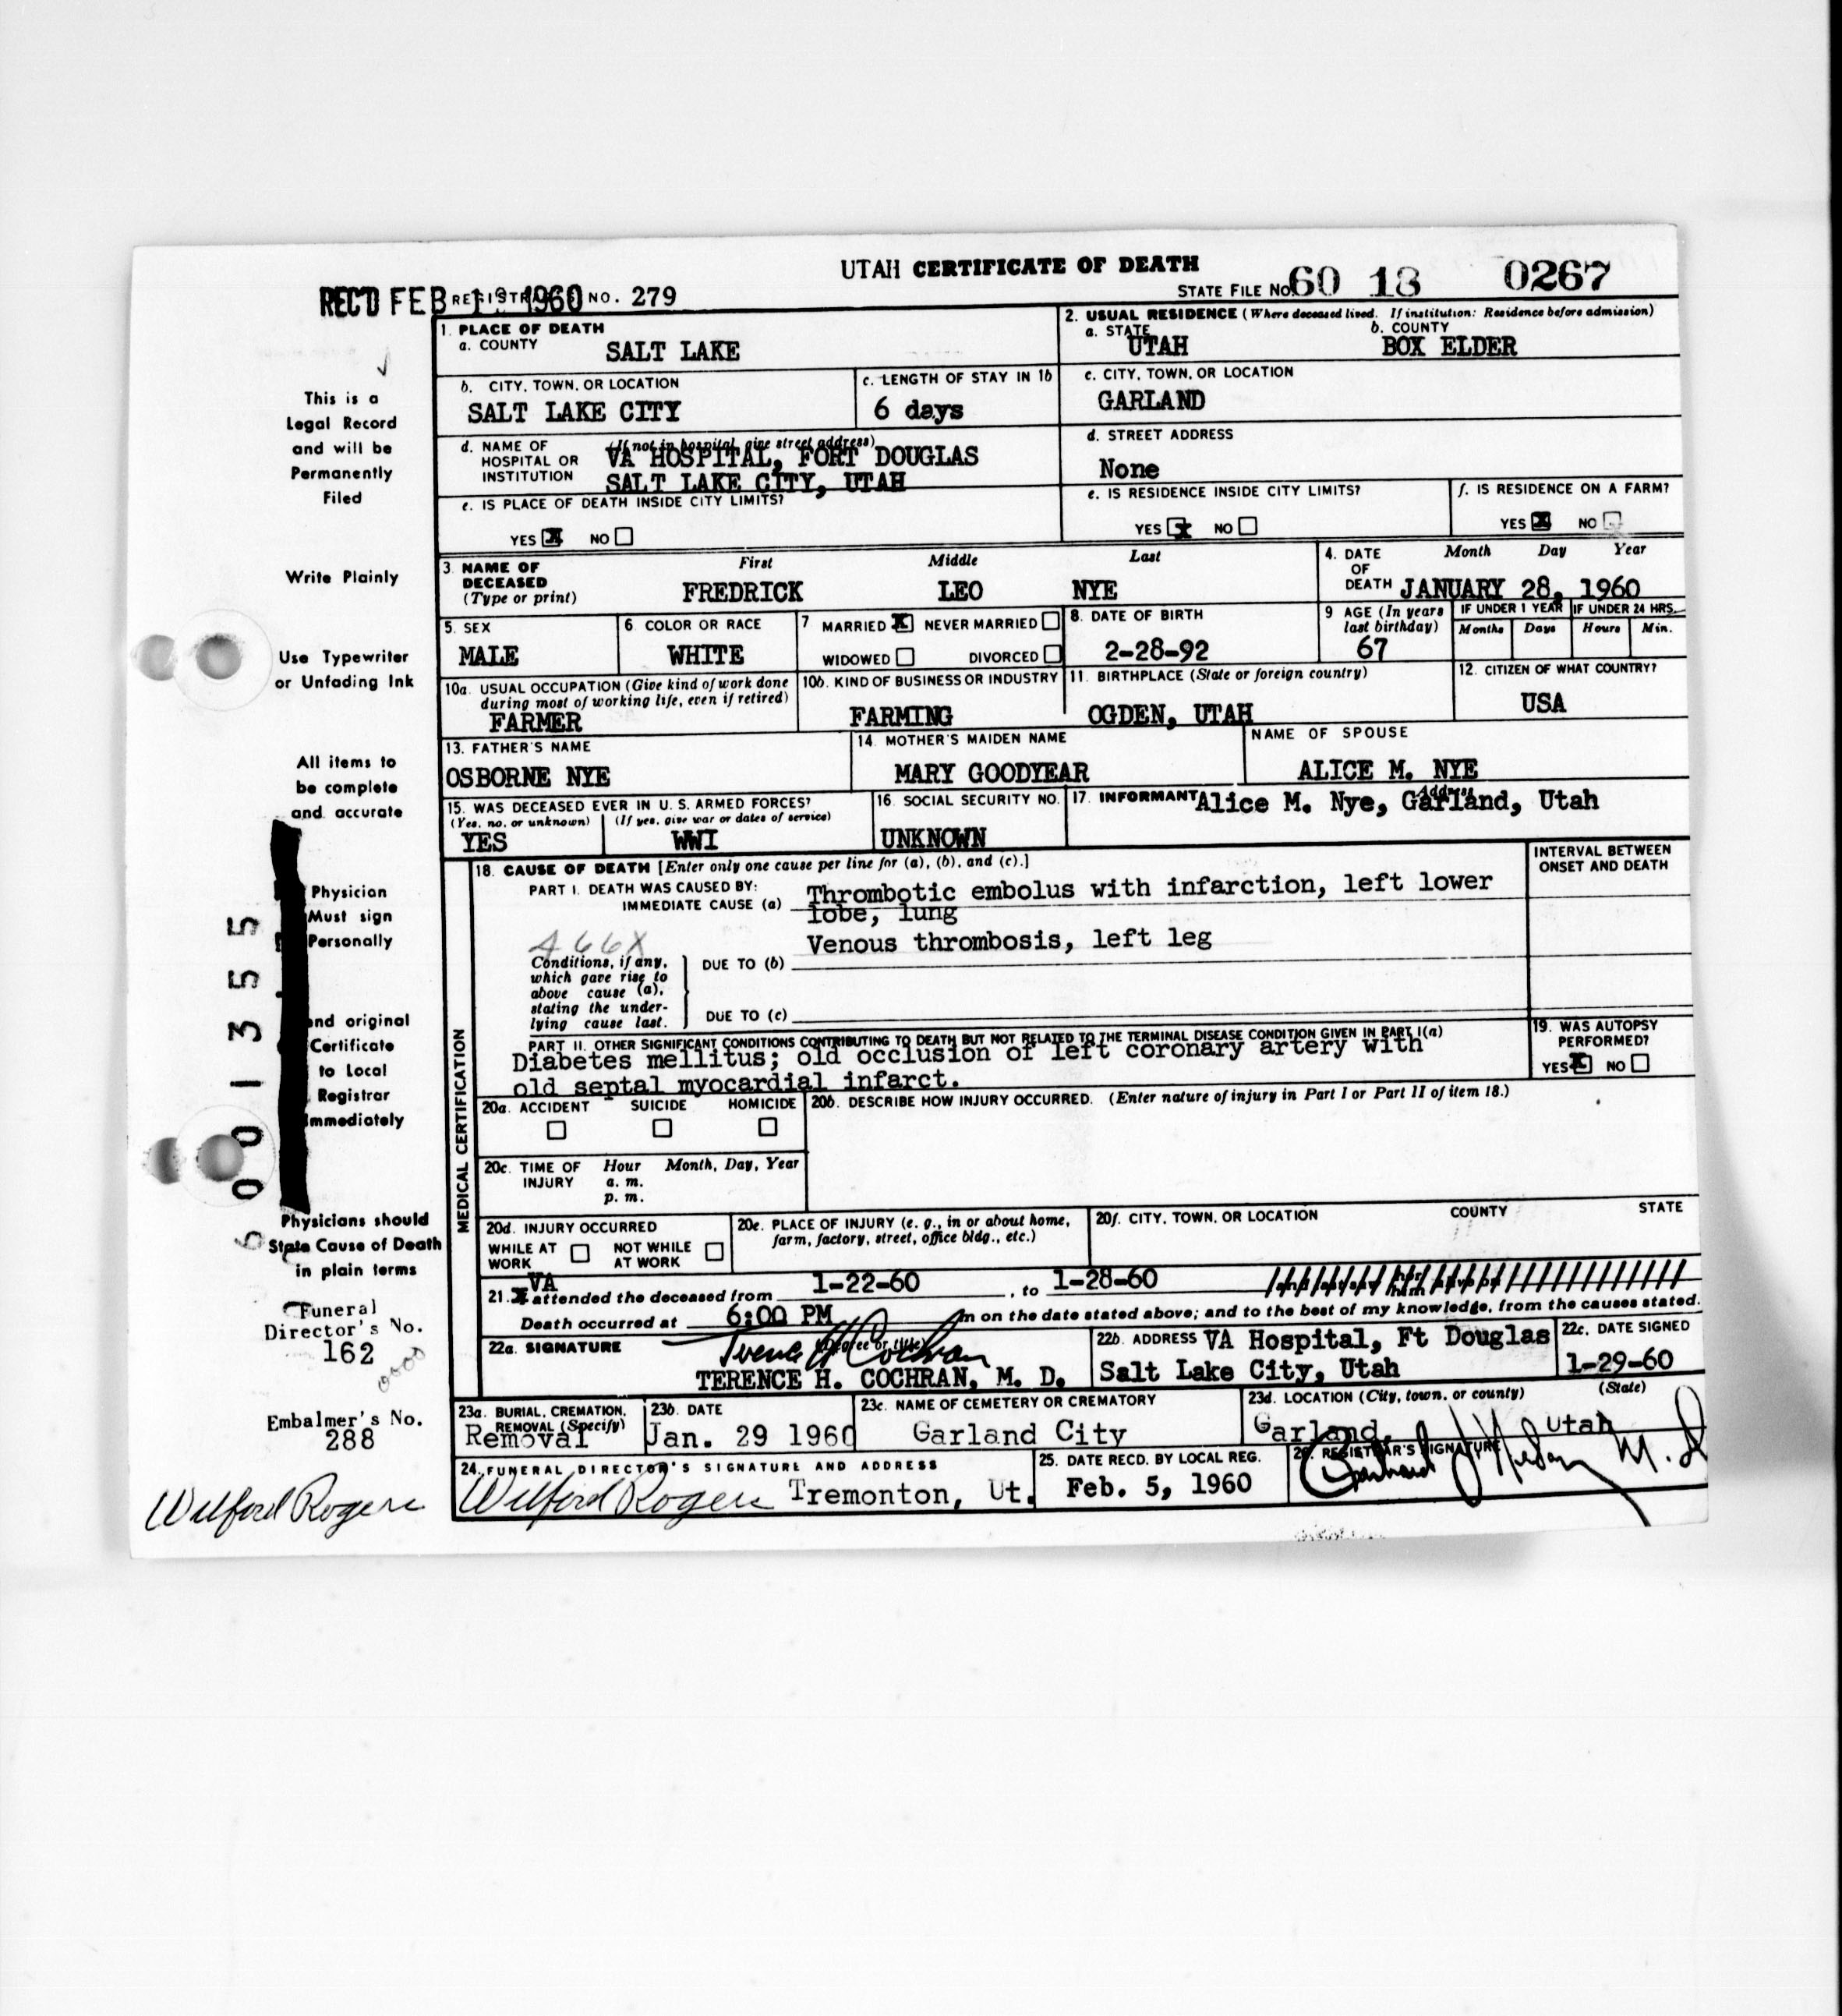 UTAH CERTIFICATE OF DEATH
REC'D FEB 1960 NO. 279
STATE FILE NO. 60 18 0267
1. PLACE OF DEATH
a. COUNTY SALT LAKE
2. USUAL RESIDENCE (Where deceased lived. If institution: Residence before admission)
a. STATE UTAH b. COUNTY BOX ELDER
b. CITY, TOWN, OR LOCATION SALT LAKE CITY
c. LENGTH OF STAY IN 1b 6 days
c. CITY, TOWN, OR LOCATION GARLAND
d. NAME OF HOSPITAL OR INSTITUTION (If not in hospital, give street address)
VA HOSPITAL, FORT DOUGLAS
SALT LAKE CITY, UTAH
d. STREET ADDRESS None
e. IS PLACE OF DEATH INSIDE CITY LIMITS?
YES X NO
e. IS RESIDENCE INSIDE CITY LIMITS?
YES X NO
f. IS RESIDENCE ON A FARM?
YES X NO
3. NAME OF DECEASED (Type or print)
First Middle Last
FREDRICK LEO NYE
4. DATE OF DEATH Month Day Year
JANUARY 28, 1960
5. SEX MALE
6. COLOR OR RACE WHITE
7 MARRIED X NEVER MARRIED
WIDOWED DIVORCED
8. DATE OF BIRTH 2-28-92
9 AGE (In years last birthday) 67
IF UNDER 1 YEAR Months Days
IF UNDER 24 HRS. Hours Min.
10a. USUAL OCCUPATION (Give kind of work done during most of working life, even if retired)
FARMER
10b. KIND OF BUSINESS OR INDUSTRY
FARMING
11. BIRTHPLACE (State or foreign country)
OGDEN, UTAH
12. CITIZEN OF WHAT COUNTRY?
USA
13. FATHER'S NAME
OSBORNE NYE
14. MOTHER'S MAIDEN NAME
MARY GOODYEAR
NAME OF SPOUSE
ALICE M. NYE
15. WAS DECEASED EVER IN U. S. ARMED FORCES?
(Yes, no, or unknown) (If yes, give war or dates of service)
YES WWI
16. SOCIAL SECURITY NO.
UNKNOWN
17. INFORMANT Address
Alice M. Nye, Garland, Utah
MEDICAL CERTIFICATION
18. CAUSE OF DEATH [Enter only one cause per line for (a), (b), and (c).]
INTERVAL BETWEEN ONSET AND DEATH
PART I. DEATH WAS CAUSED BY:
IMMEDIATE CAUSE (a) Thrombotic embolus with infarction, left lower
lobe, lung
466X
Venous thrombosis, left leg
Conditions, if any, which gave rise to above cause (a), stating the underlying cause last.
DUE TO (b)
DUE TO (c)
PART II. OTHER SIGNIFICANT CONDITIONS CONTRIBUTING TO DEATH BUT NOT RELATED TO THE TERMINAL DISEASE CONDITION GIVEN IN PART I(a)
Diabetes mellitus; old occlusion of left coronary artery with
old septal myocardial infarct.
19. WAS AUTOPSY PERFORMED?
YES X NO
20a. ACCIDENT SUICIDE HOMICIDE
20b. DESCRIBE HOW INJURY OCCURRED. (Enter nature of injury in Part I or Part II of item 18.)
20c. TIME OF INJURY Hour Month, Day, Year
a. m.
p. m.
20d. INJURY OCCURRED
WHILE AT WORK NOT WHILE AT WORK
20e. PLACE OF INJURY (e. g., in or about home, farm, factory, street, office bldg., etc.)
20f. CITY, TOWN, OR LOCATION COUNTY STATE
21. VA attended the deceased from 1-22-60, to 1-28-60
Death occurred at 6:00 PM m on the date stated above; and to the best of my knowledge, from the causes stated.
22a. SIGNATURE (Degree or title)
Terence H Cochran
TERENCE H. COCHRAN, M. D.
22b. ADDRESS VA Hospital, Ft Douglas
Salt Lake City, Utah
22c. DATE SIGNED
1-29-60
23a. BURIAL, CREMATION, REMOVAL (Specify)
Removal
23b. DATE
Jan. 29 1960
23c. NAME OF CEMETERY OR CREMATORY
Garland City
23d. LOCATION (City, town, or county) (State)
Garland, Utah
24. FUNERAL DIRECTOR'S SIGNATURE AND ADDRESS
Wilford Rogers Tremonton, Ut.
25. DATE RECD. BY LOCAL REG.
Feb. 5, 1960
26. REGISTRAR'S SIGNATURE
M. D
This is a
Legal Record
and will be
Permanently
Filed
Write Plainly
Use Typewriter
or Unfading Ink
All items to
be complete
and accurate
Physician
Must sign
Personally
original
Certificate
to Local
Registrar
Immediately
Physicians should
State Cause of Death
in plain terms
Funeral
Director's No.
162
Embalmer's No.
288
Wilford Rogers
001355